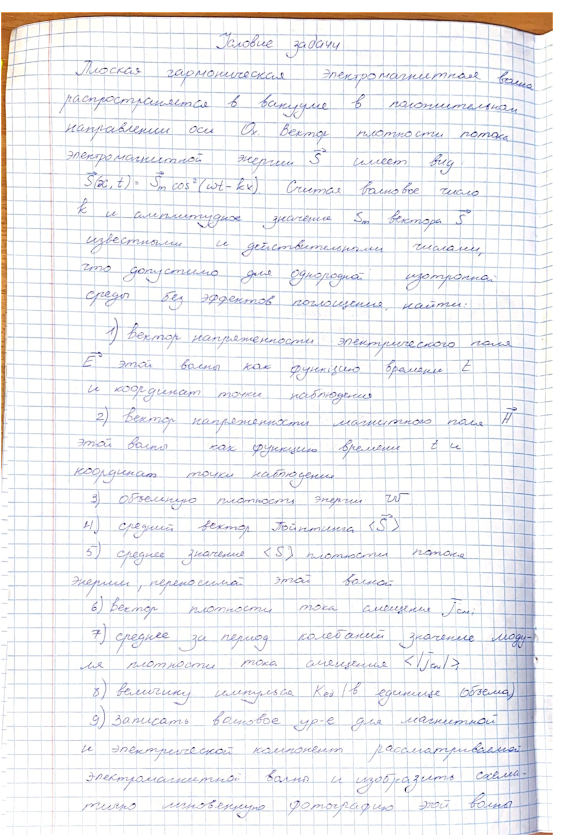 Условие задачи
Плоская гармоническая электромагнитная волна
распространяется в вакууме в положительном
направлении оси Ox. Вектор плотности потока
электромагнитной энергии S⃗ имеет вид:
S⃗(x, t) = S⃗m cos²(ωt - kx). Считая волновое число
k и амплитудное значение Sm вектора S⃗
известными и действительными числами,
что допустимо для однородной изотропной
среды без эффектов поглощения, найти:
1) Вектор напряженности электрического поля
E⃗ этой волны как функцию времени t
и координат точки наблюдения
2) вектор напряженности магнитного поля H⃗
этой волны как функцию времени t и
координат точки наблюдения
3) объемную плотность энергии w
4) средний вектор Пойнтинга <S⃗>
5) среднее значение <S> плотности потока
энергии, переносимой этой волной
6) вектор плотности тока смещения j⃗см;
7) среднее за период колебаний значение моду-
ля плотности тока смещения <|jсм|>;
8) величину импульса Kед (в единице объема)
9) Записать волновое ур-е для магнитной
и электрической компонент рассматриваемой
электромагнитной волны и изобразить схема-
тично мгновенную фотографию этой волны